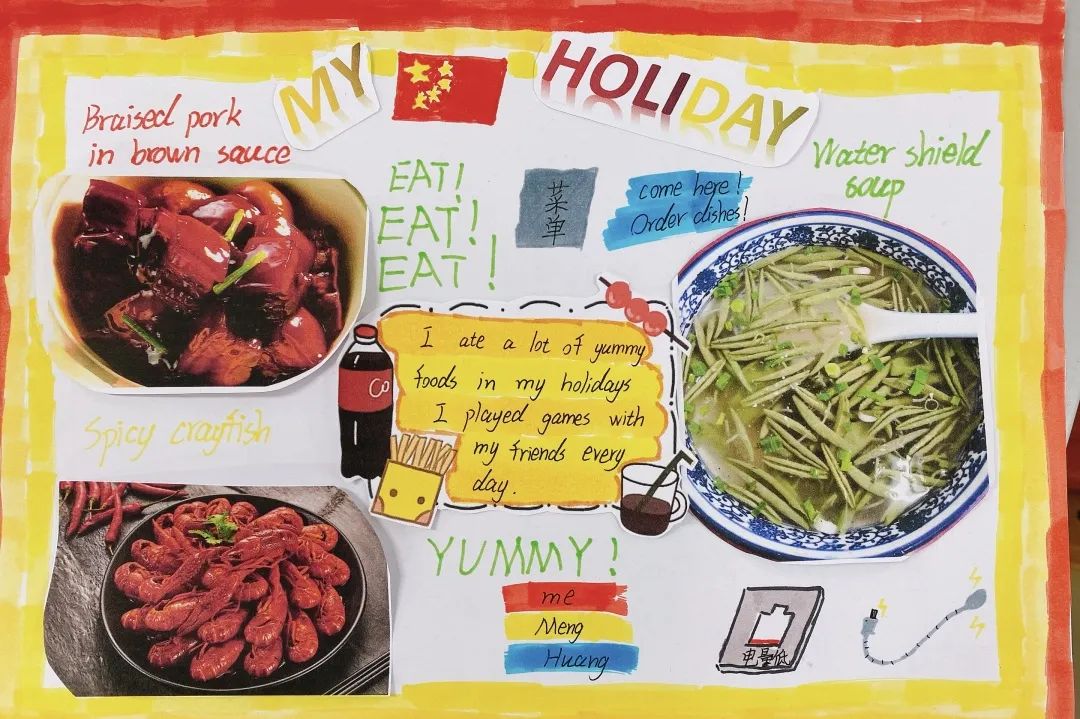 MY HOLIDAY
Braised pork
in brown sauce
EAT!
EAT!
EAT!
菜单
come here!
Order dishes!
Water shield
soup
I ate a lot of yummy
foods in my holidays
I played games with
my friends every
day.
Co
Spicy crayfish
YUMMY!
me
Meng
Huang
电量低